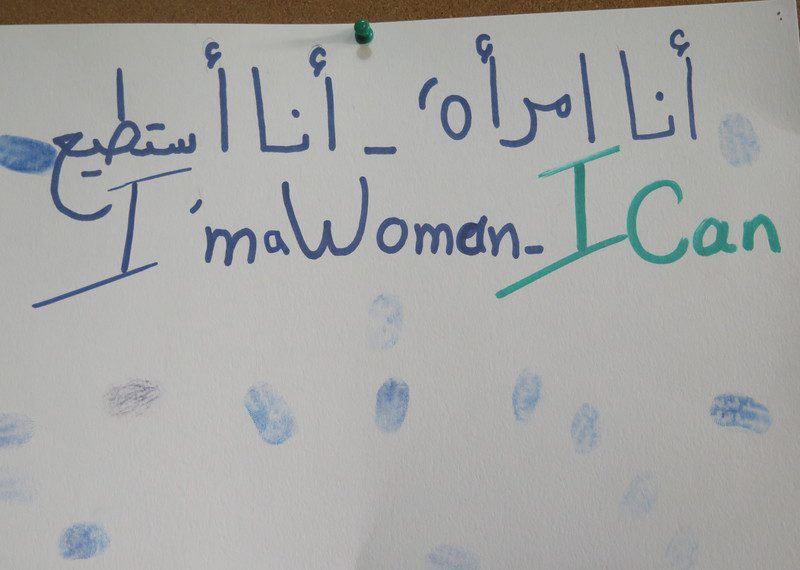 أنا امرأه' _ أنا أستطيع
I'm a Woman - I Can